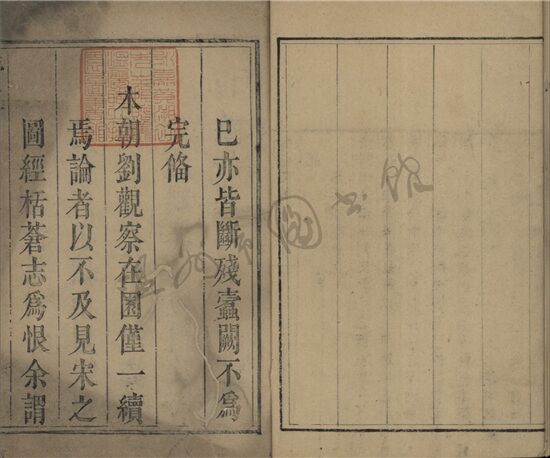 已亦皆斷殘蠹闕不爲
完俻
本朝劉觀察在園僅一續
焉論者以不及見宋之
圖經栝蒼志爲恨余謂
温州市图书馆